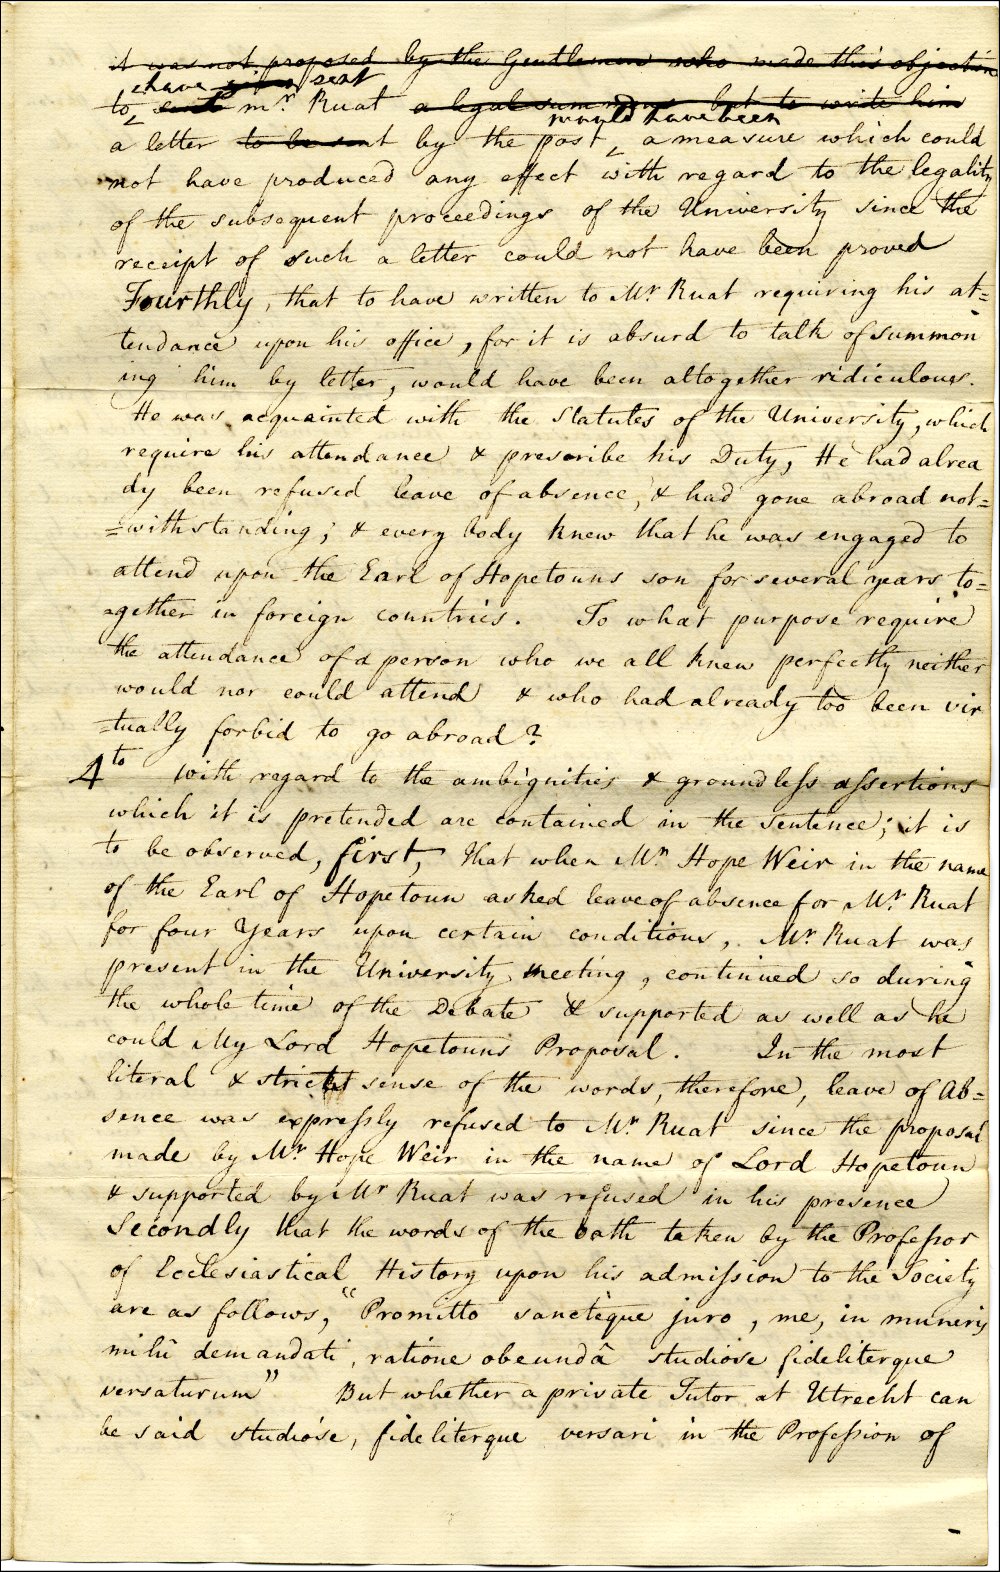 it was not proposed by the Gentlemen who made this objection
have given sent
to send mr Ruat a legal summons but to write him
would have been
a letter to be sent by the post, a measure which could
not have produced any effect with regard to the legality
of the subsequent proceedings of the University since the
receipt of such a letter could not have been proved
Fourthly, that to have written to Mr Ruat requiring his at=
tendance upon his office, for it is absurd to talk of summon
ing him by letter, would have been altogether ridiculous.
He was acquainted with the Statutes of the University, which
require his attendance & prescribe his Duty, He had alrea
dy been refused leave of absence, & had gone abroad not=
=withstanding; & every body knew that he was engaged to
attend upon the Earl of Hopetouns son for several years to=
=gether in foreign countries. To what purpose require
the attendance of a person who we all knew perfectly neither
would nor could attend & who had already too been vir
=tually forbid to go abroad?
4to With regard to the ambiguities & groundless assertions
which it is pretended are contained in the sentence; it is
to be observed, first, that when Mr Hope Weir in the name
of the Earl of Hopetoun asked leave of absence for Mr Ruat
for four Years upon certain conditions, Mr Ruat was
present in the University meeting, continued so during
the whole time of the Debate & supported as well as he
could My Lord Hopetouns Proposal. In the most
literal & strictest sense of the words, therefore, leave of Ab=
sence was expressly refused to Mr Ruat since the proposal
made by Mr Hope Weir in the name of Lord Hopetoun
& supported by Mr Ruat was refused in his presence
Secondly that the words of the oath taken by the Professor
of Ecclesiastical History upon his admission to the Society
are as follows, "Promitto sanctèque juro, me, in muneris
mihi demandati, ratione obeundâ studiose fideliterque
versaturum" But whether a private Tutor at Utrecht can
be said studiose, fideliterque versari in the Profession of